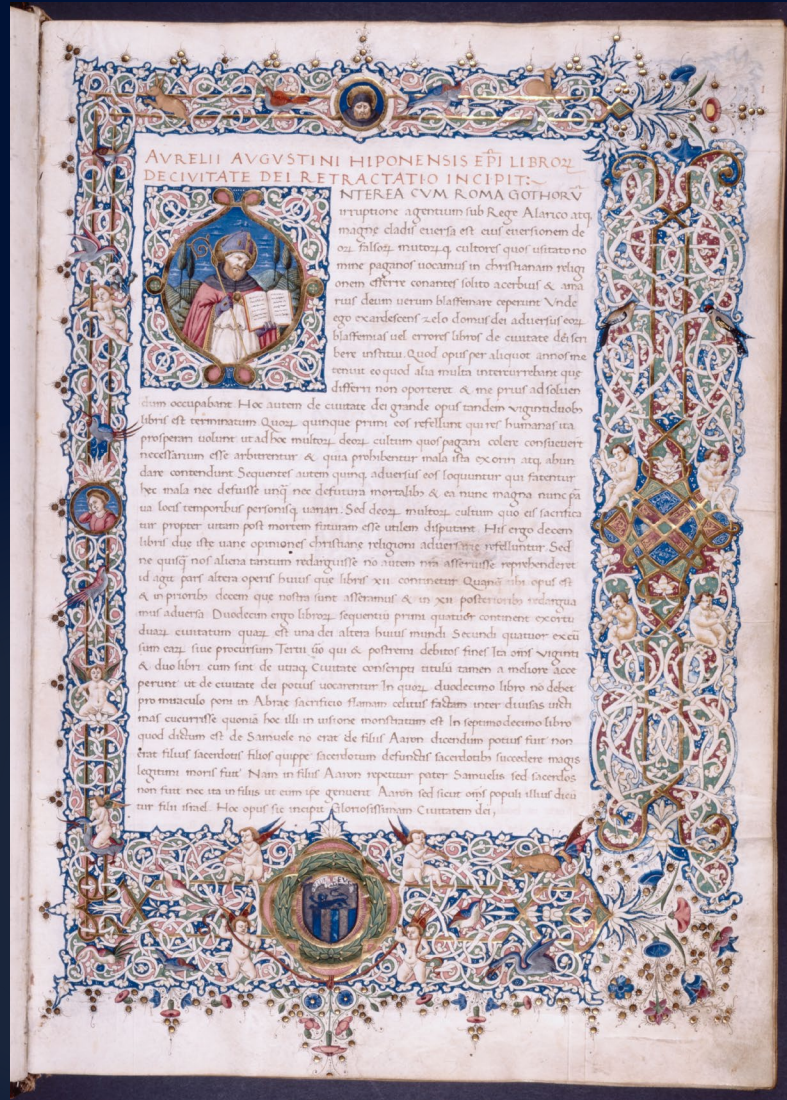 AVRELII AVGVSTINI HIPONENSIS EPI LIBROꝜ
DE CIVITATE DEI RETRACTATIO INCIPIT:
NTEREA CVM ROMA GOTHORV̄
irruptione agentium sub Rege Alarico atq
magnę cladis euersa est eius euersionem de
oꝝ falsoꝝ multoꝝ q cultores quos usitato no
mine paganos uocamus in christianam religi
onem efferre conantes solito acerbius & ama
rius deum uerum blasfemare ceperunt Vnde
ego exardescens zelo domus dei aduersus eoꝝ
blasfemias uel errores libros de ciuitate dei scri
bere institui. Quod opus per aliquot annos me
tenuit eo quod alia multa intercurrebant que
differri non oporteret & me prius ad soluen
dum occupabant. Hoc autem de ciuitate dei grande opus tandem uigintiduob
libris est terminatum Quoꝝ quinque primi eos refellunt qui res humanas ita
prosperari uolunt ut ad hoc multoꝝ deoꝝ cultum quos pagani colere consueuert
necessarium esse arbitrentur & quia prohibentur mala ista exoriri atq abun
dare contendunt Sequentes autem quinq aduersus eos loquuntur qui fatentur
hec mala nec defuisse unq nec defutura mortalib & ea nunc magna nunc pa
ua locis temporibus personisq uariari. Sed deoꝝ multoꝝ cultum quo eis sacrifica
tur propter uitam post mortem futuram esse utilem disputant. His ergo decem
libris due iste uane opiniones christiane religioni aduersarie refelluntur. Sed
ne quisq nos aliena tantum redarguisse no autem nra asseruisse reprehenderet
id agit pars altera operis huius que libris xii continetur Quanq ubi opus est
& in priorib decem que nostra sunt asseramus & in xii posteriorib redargua
mus aduersa Duodecim ergo libroꝝ sequentiu primi quatuor continent exortu
duaꝝ ciuitatum quaꝝ est una dei altera huius mundi Secundi quatuor excu
sum eaꝝ siue procursum Tertii uo qui & postremi debitos fines Ita oms uiginti
& duo libri cum sint de utraq Ciuitate conscripti titulu tamen a meliore acce
perunt ut de ciuitate dei potius uocarentur In quoꝝ duodecimo libro no debet
pro miraculo poni in Abrae sacrificio flamam celitus factam inter diuisas uicti
mas cucurrisse quoniā hoc illi in uisione monstratum est In septimodecimo libro
quod dictum est de Samuele no erat de filiis Aaron dicendum potius fuit non
erat filius sacerdotis filios quippe sacerdotum defunctis sacerdotib succedere magis
legitimi moris fuit Nam in filiis Aaron repetitur pater Samuelis sed sacerdos
non fuit nec ita in filiis ut eum ipe genuerit Aaron sed sicut oms populi illius dicu
tur filii israel. Hoc opus sic incipit Gloriosissimam Ciuitatem dei,